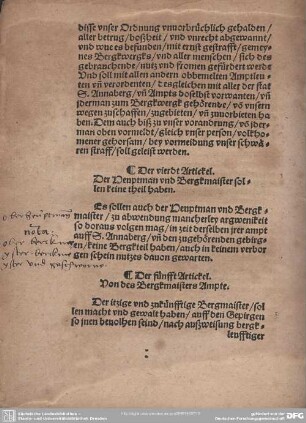 disse vnser Ordnung vnuerbrüchlich gehalden/
aller betrug/ boßheit/ vnd vnrecht abgewannt/
vnd wue es befunden/ mit ernst gestrafft/ gemey-
nes Bergkwergks/ vnd aller menschen/ sich des
gebrauchende/ nutz vnd fromen gefürdert werde
Vnd soll mit allen andern obbemelten Amptleu-
ten vñ verordenten/ desgleichen mit aller der stat
S. Annaberg/ vñ Ampts doselbst vorwanten/ vñ
jderman zum Bergkwergk gehörende/ vō vnsern
wegen zuschaffen/ zugebieten/ vñ zuuorbieten ha
ben. Dem auch biß zu vnser vorandrung/ vō jder-
man oben vormeldt/ gleich vnser person/ volkho-
mener gehorsam/ bey vormeidung vnser schwä-
ren straff/ soll geleist werden.
¶ Der vierdt Artickel.
Der Heuptman vnd Bergkmaister sol-
len keine theil haben.
Es sollen auch der Heuptman vnd Bergk-
maister/ zu abwendung mancherley argwenikeit
so doraus volgen mag/ in zeit derselben jrer ampt
auff S. Annaberg/ vñ den zugehörenden gebirg-
en/ keine Bergkteil haben/ auch in keinem verbor
gen schein nutzes dauon gewarten.
nōta:
¶ Der fünfft Artickel.
Von des Bergkmaisters Ampte.
Der itzige vnd zukünfftige Bergmaister/ sol
len macht vnd gewalt haben/ auff den Gepirgen
so jnen beuolhen seind/ nach außweisung bergk-
leufftiger